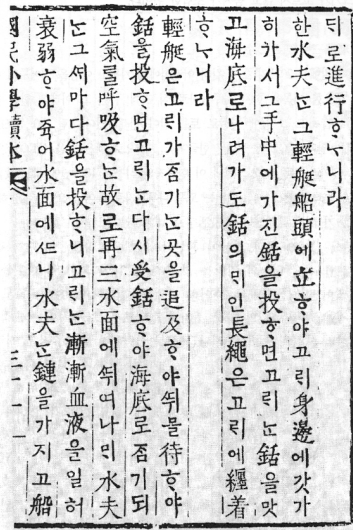 듸로進行ᄒᆞᄂᆞ니라
한水夫ᄂᆞᆫ그輕艇船頭에立ᄒᆞ야고ᄅᆡ身邊에갓가
히가셔그手中에가진銛을投ᄒᆞ면고ᄅᆡᄂᆞᆫ銛을맛
고海底로나려가도銛의ᄆᆡ인長繩은고ᄅᆡ에纏着
ᄒᆞᄂᆞ니라
輕艇은고ᄅᆡ가ᄌᆞᆷ기ᄂᆞᆫ곳을追及ᄒᆞ야ᄯᅱ믈待ᄒᆞ야
銛을投ᄒᆞ면고ᄅᆡᄂᆞᆫ다시受銛ᄒᆞ야海底로ᄌᆞᆷ기되
空氣ᄅᆞᆯ呼吸ᄒᆞᄂᆞᆫ故로再三水面에ᄯᅱ여나ᄆᆡ水夫
ᄂᆞᆫ그ᄯᅢ마다銛을投ᄒᆞ니고ᄅᆡᄂᆞᆫ漸漸血液을일허
衰弱ᄒᆞ야쥭어水面에ᄯᅳ니水夫ᄂᆞᆫ鏈을가지고船
國民小學讀本
三十一